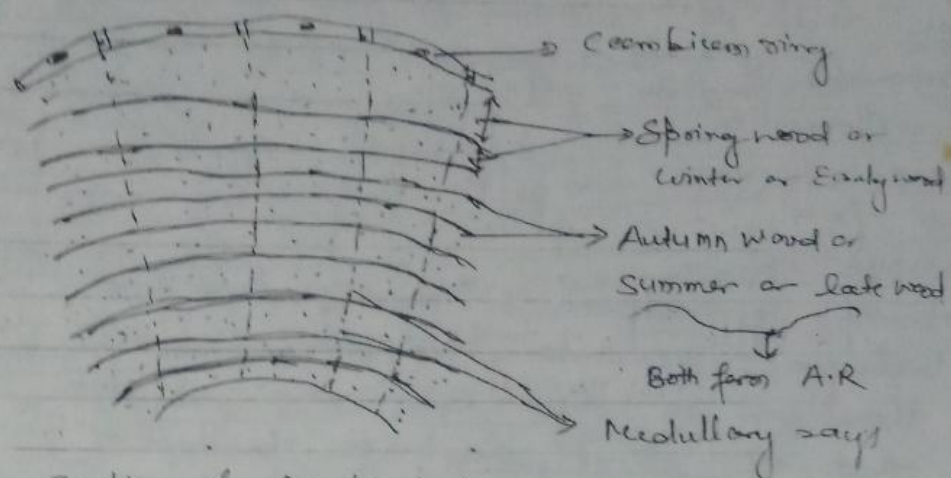 Coambicam ring
Spring wood or
winter or Earlywood
Autumn wood or
Summer or late wood
Both form A.R
Medullary rays